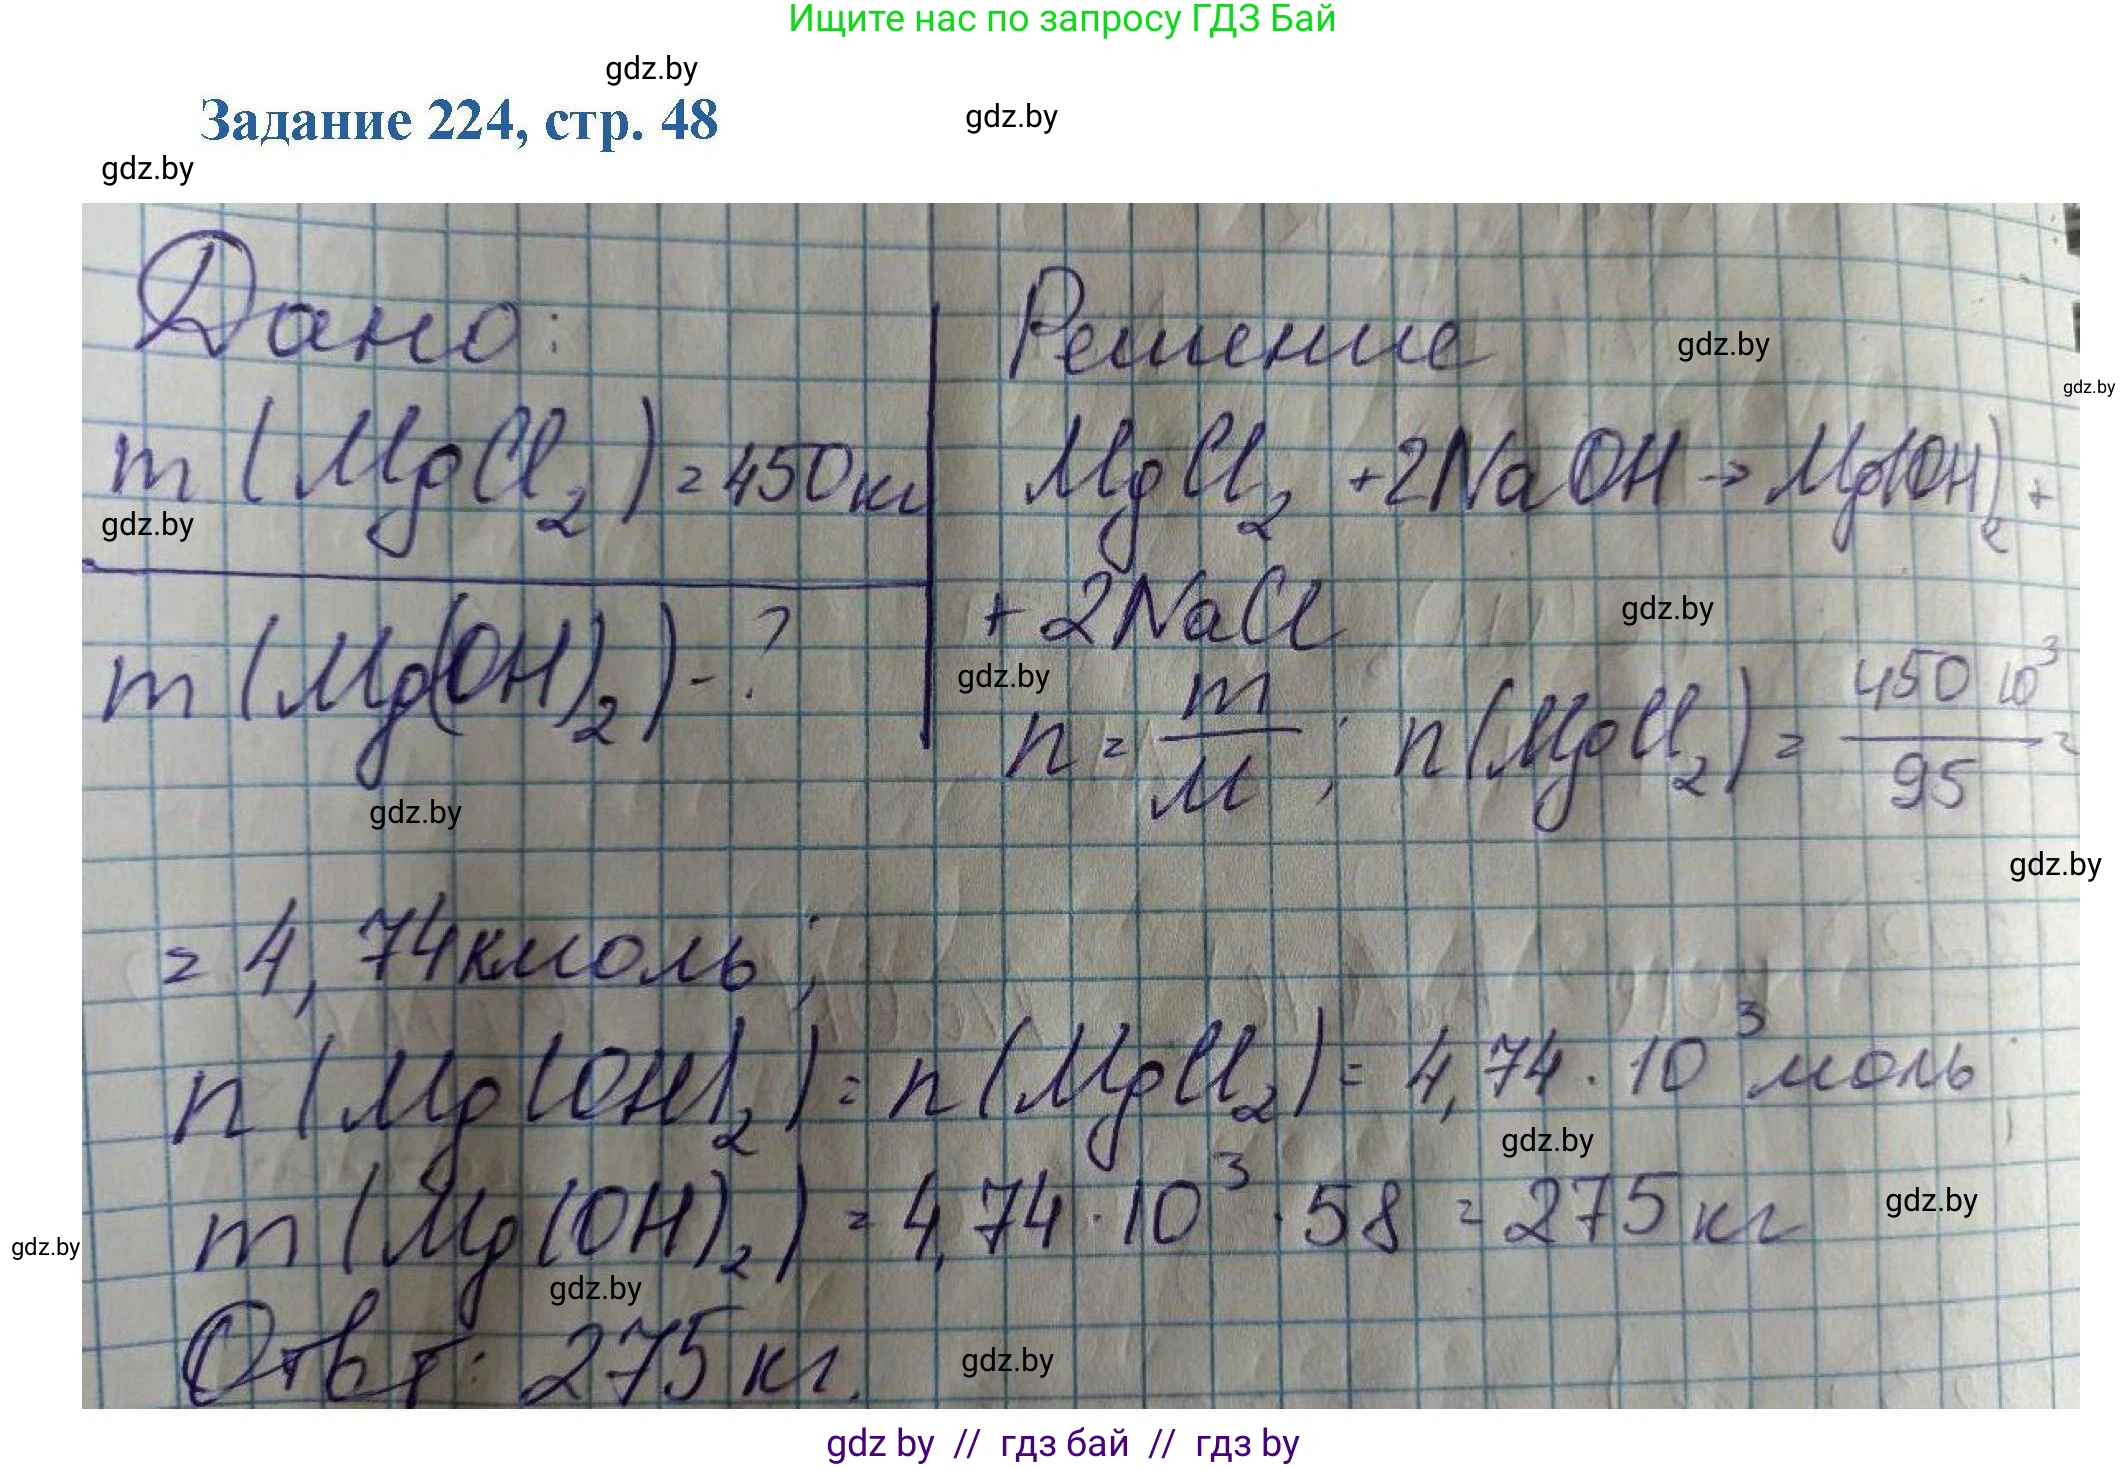 Ищите нас по запросу ГДЗ Бай
gdz.by
Задание 224, стр. 48
gdz.by
gdz.by
Дано:
Решение
gdz.by
gdz.by
m (MgCl₂) = 450 кг
MgCl₂ + 2NaOH → Mg(OH)₂ +
gdz.by
+ 2NaCl
gdz.by
m (Mg(OH)₂) - ?
gdz.by
n = m/M ; n(MgCl₂) = 450 10³/95 =
gdz.by
gdz.by
= 4, 74 кмоль ;
n (Mg(OH)₂) = n (MgCl₂) = 4, 74 · 10³ моль
gdz.by
m (Mg(OH)₂) = 4, 74 · 10³ · 58 = 275 кг
gdz.by
gdz.by
gdz.by
Ответ: 275 кг.
gdz.by
gdz by // гдз бай // гдз by